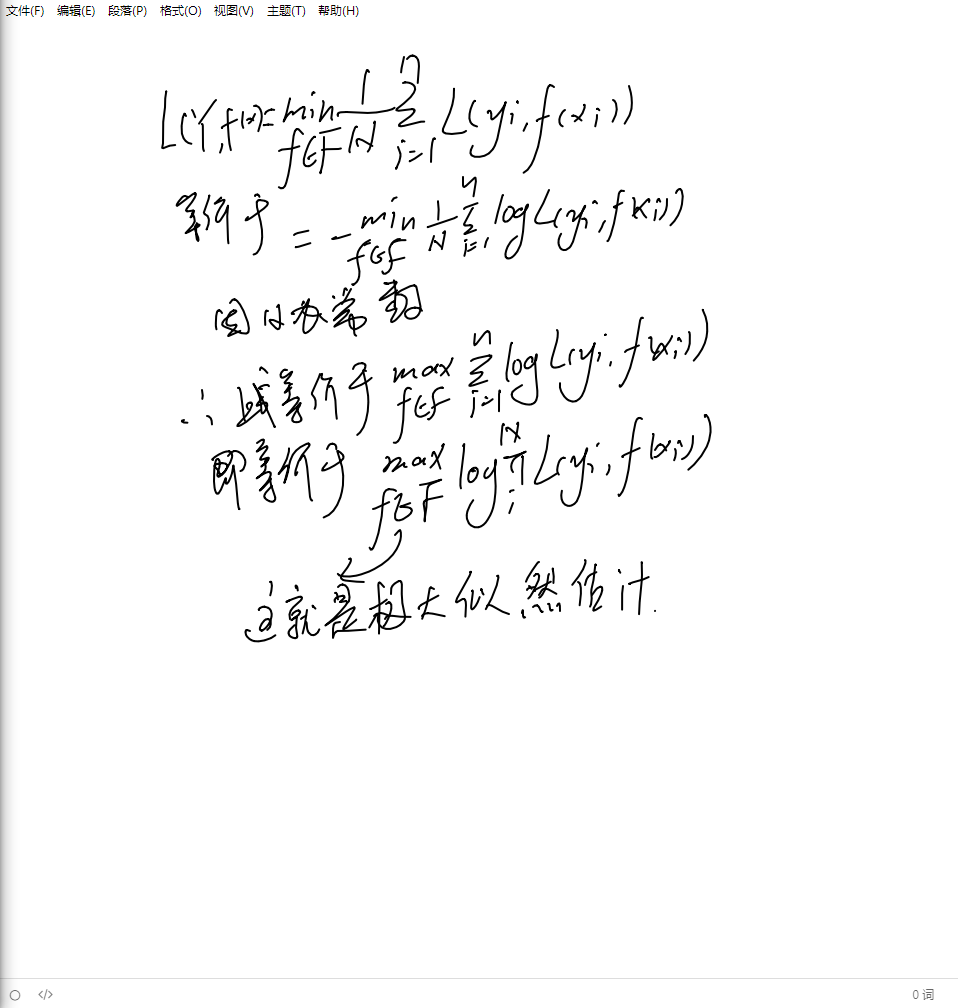 文件(F) 编辑(E) 段落(P) 格式(O) 视图(V) 主题(T) 帮助(H)
L(Y,f(x)= min f∈F 1/N Σ i=1 n L(yi,f(xi))
等价于 = - min f∈f 1/N Σ i=1 n log L(yi,f(xi))
因N为常数
∴ 等价于 max f∈f Σ i=1 n log L(yi,f(xi))
即等价于 max f∈F log Π i N L(yi,f(xi))
这就是极大似然估计.
</> 0 词